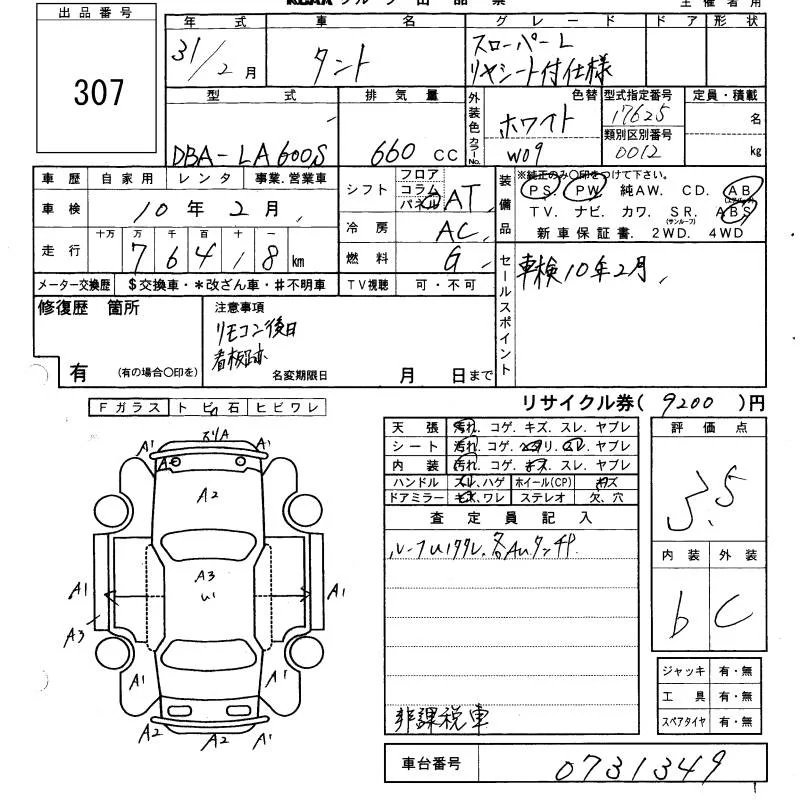 出品番号
307
年式 車名 グレード ドア形状
31/2月 タント スローパーL
リヤシート付仕様
型式 排気量 外装色 色替 型式指定番号 定員・積載
DBA-LA600S 660 CC ホワイト 17625 名
カラーNo. W09 類別区別番号 0012 kg
車歴 自家用 レンタ 事業.営業車
車検 10年2月
走行 十万 万 千 百 十 一
7 6 4 1 8 km
メーター交換歴 $交換車・*改ざん車・#不明車
シフト フロア コラム パネル AT
冷房 AC
燃料 G
TV視聴 可・不可
装備品 ※純正のみ〇印をつけて下さい。
PS. PW. 純AW. CD. AB
TV. ナビ. カワ. SR. ABS
(サンルーフ)
新車保証書. 2WD. 4WD
セールスポイント 車検10年2月
修復歴 箇所
有 (有の場合〇印を)
注意事項
リモコン後日
看板跡
名変期限日 月 日まで
リサイクル券( 9200 )円
Fガラス トビ石 ヒビワレ
天張 汚れ. コゲ. キズ. スレ. ヤブレ
シート 汚れ. コゲ.
スレ. ヤブレ
内装 汚れ. コゲ. キズ. スレ. ヤブレ
ハンドル スレ,ハゲ ホイール(CP) キズ
ドアミラー キズ,ワレ ステレオ 欠、穴
査定員記入
非課税車
評価点
3.5
内装 外装
b C
ジャッキ 有・無
工具 有・無
スペアタイヤ 有・無
車台番号 0731349
A1
A1
A1
A1
A2
A3
A1
A1
A3
A1
A1
A2
A2
A1